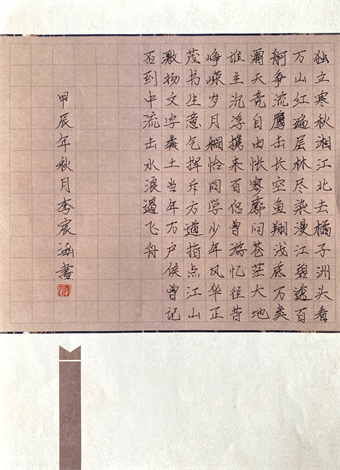 独立寒秋湘江北去橘子洲头看
万山红遍层林尽染漫江碧透百
舸争流鹰击长空鱼翔浅底万类
霜天竞自由怅寥廓问苍茫大地
谁主沉浮携来百侣曾游忆往昔
峥嵘岁月稠恰同学少年风华正
茂书生意气挥斥方遒指点江山
激扬文字粪土当年万户侯曾记
否到中流击水浪遏飞舟
甲辰年秋月李宸涵書